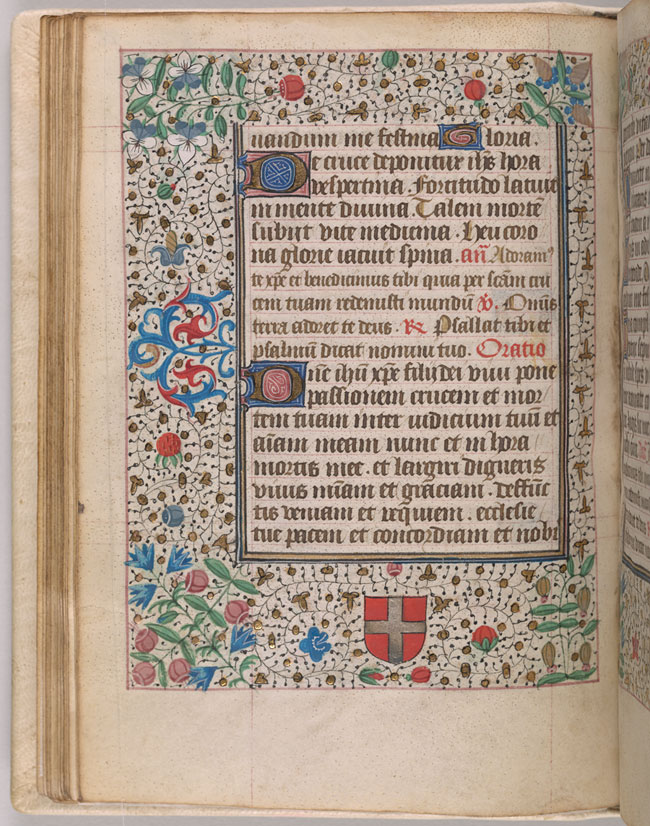 uandum me festina Gloria.
De cruce deponitur ihs hora
vespertina. Fortitudo latuit
in mente divina. Talem mortē
subiit vite medicina. heu coro
na glorie iacuit spina. añ Adoram⁹
te xpe et benedicimus tibi quia per scām cru
cem tuam redemisti mundū ℣. Omīs
terra adoret te deus. ℟ Psallat tibi et
psalmū dicat nomini tuo. Oratio
Dñe ihū xpe filij dei vivi pone
passionem crucem et mor
tem tuam inter iudicium tuū et
aīam meam nunc et in hora
mortis mee. et largiri digneris
vivis mīam et graciam. deffūc
tis veniam et requiem. ecclesie
tue pacem et concordiam et nobi